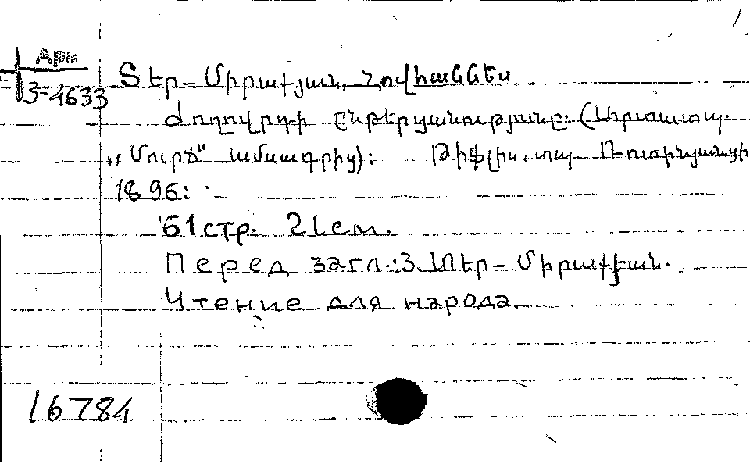 Арм
3-4633
Տեր-Միրաքյան, Հովհաննես
Ժողովրդի ընթերցանությունը: (Արտատպ.
„Մուրճ" ամսագրից): Թիֆլիս, տպ. Ռոտինյանցի
1896:
61 стр. 21 см.
Перед загл.: Տեր-Միրաքեան.
Чтение для народа.
16784